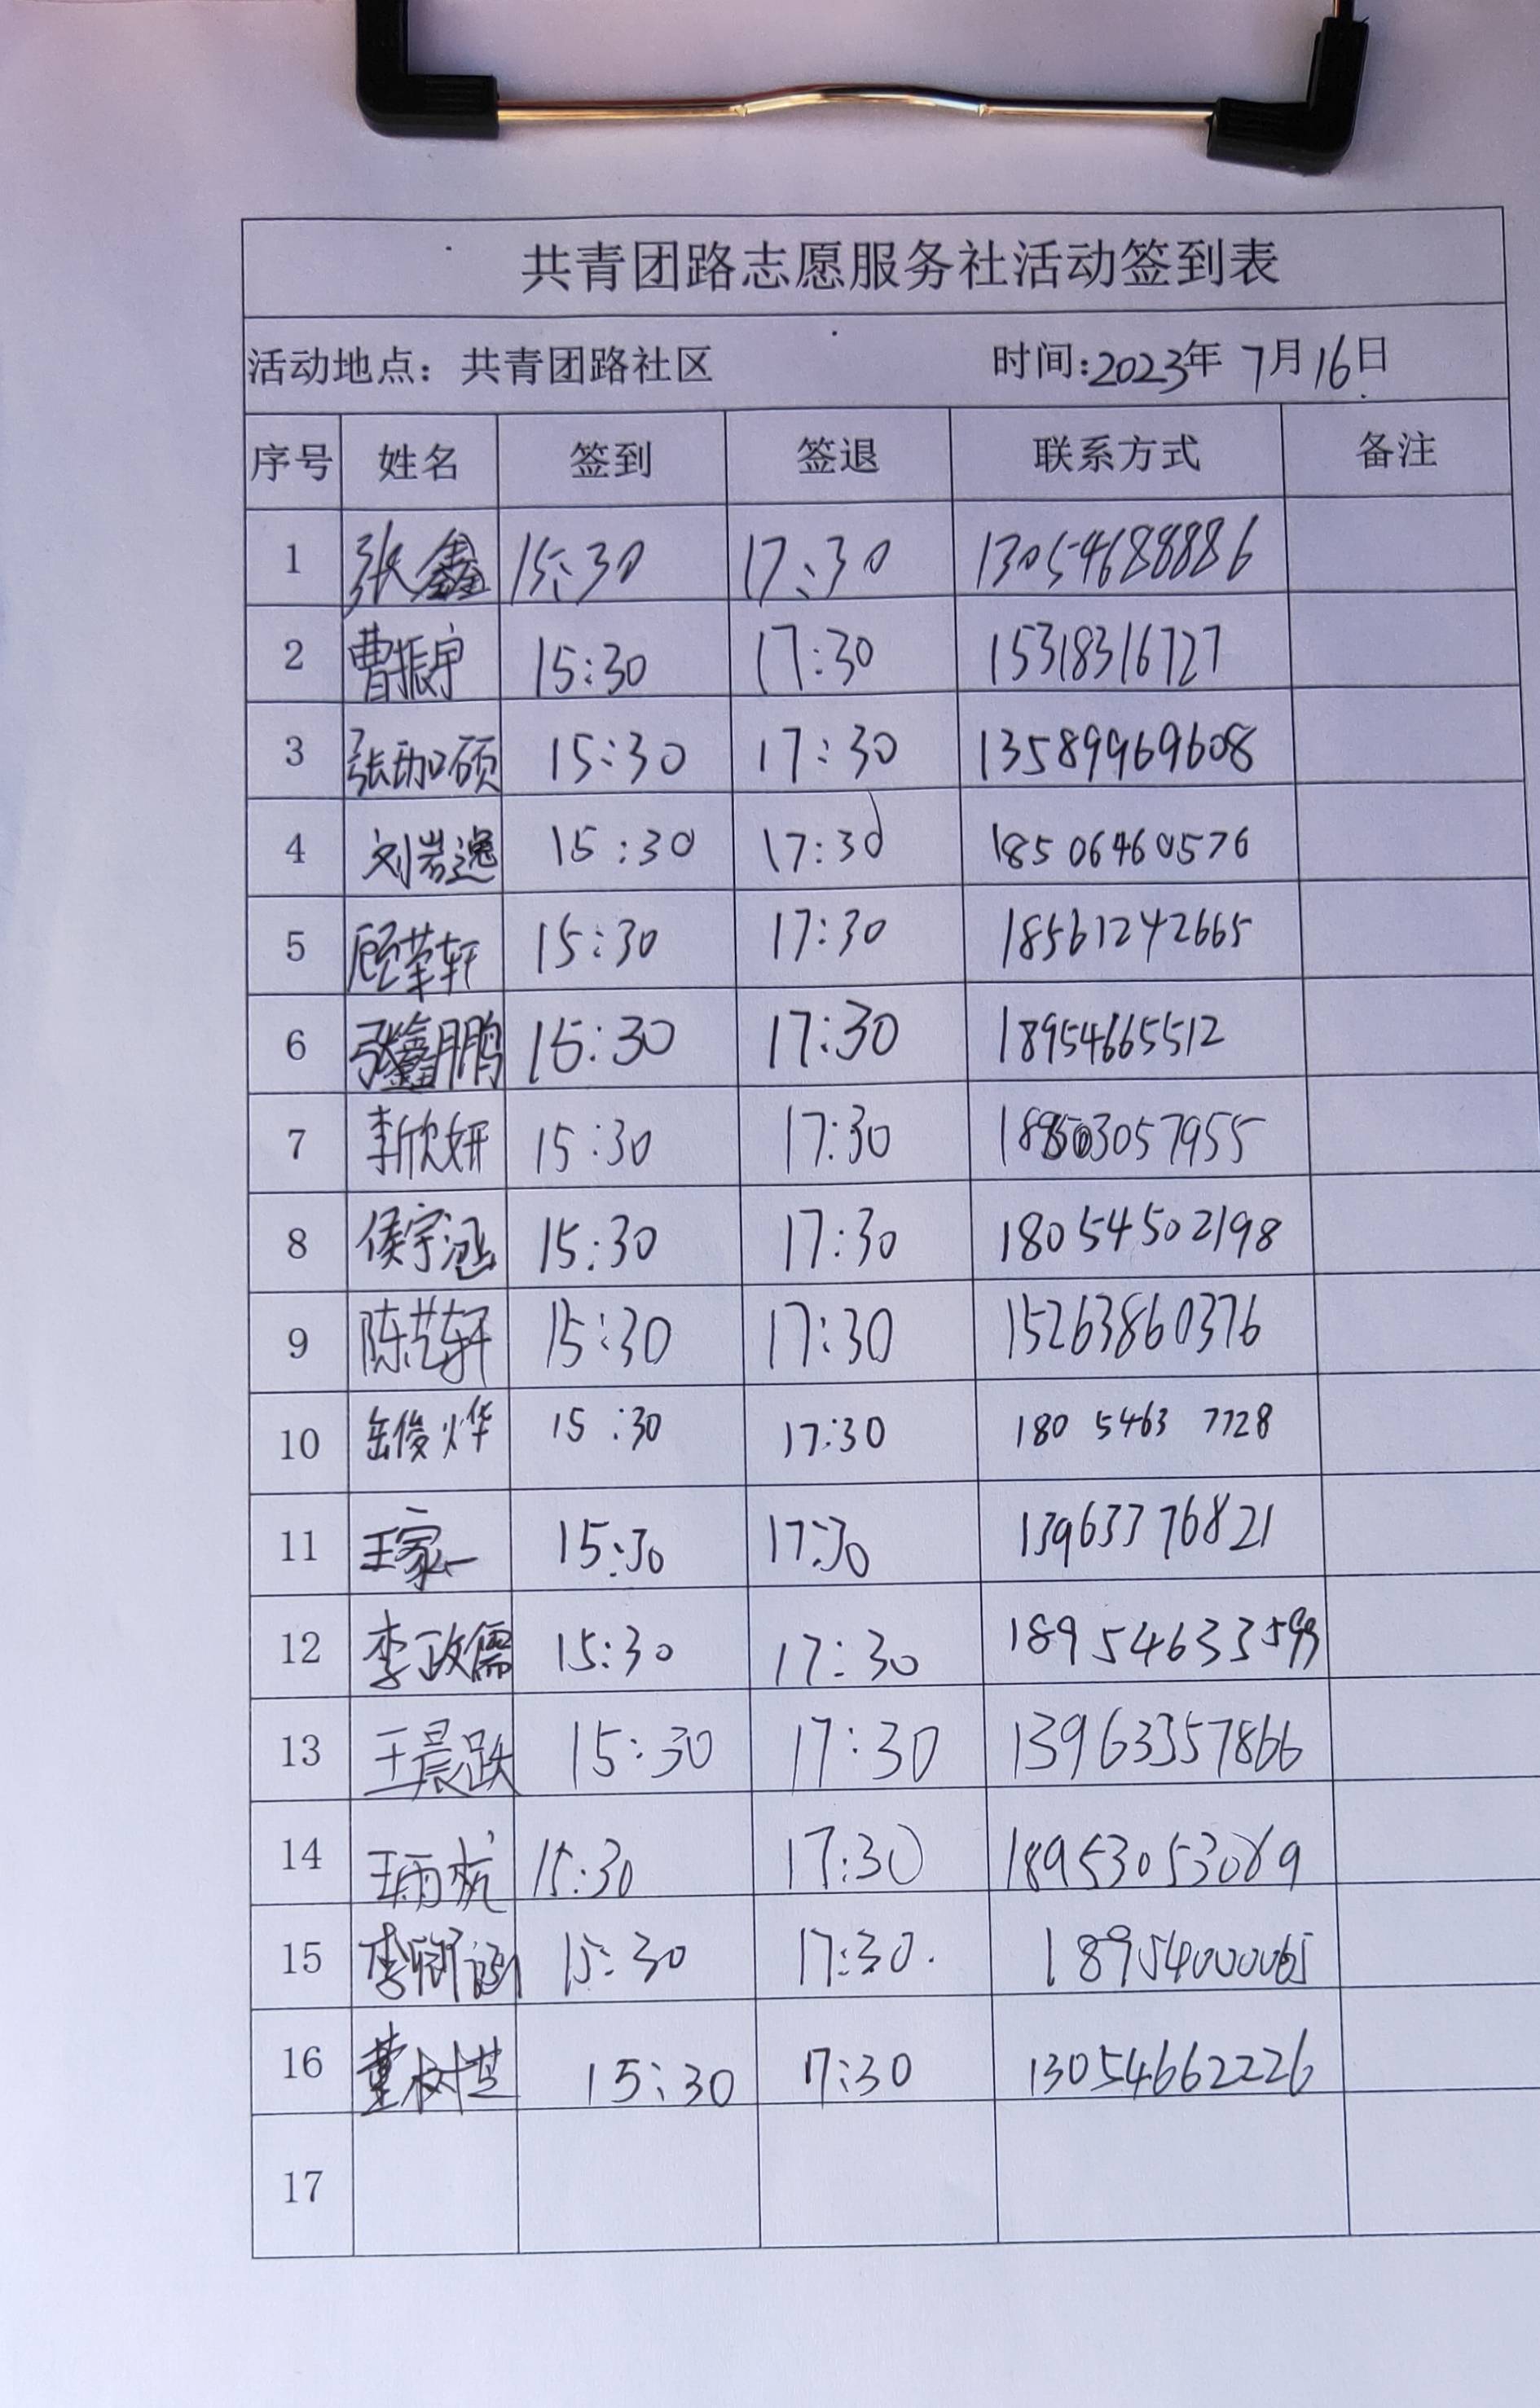 共青团路志愿服务社活动签到表
活动地点：共青团路社区 时间：2023年 7月16日
序号 姓名 签到 签退 联系方式 备注
1 张鑫 15:30 17:30 13054688886
2 曹振宇 15:30 17:30 15318316727
3 张珈硕 15:30 17:30 13589969608
4 刘岩逸 15:30 17:30 18506460576
5 顾荣轩 15:30 17:30 18561242665
6 张鑫鹏 15:30 17:30 18954665512
7 李欣妍 15:30 17:30
8 侯宇涵 15:30 17:30 18054502198
9 陈艺轩 15:30 17:30 15263860376
10 岳俊烨 15:30 17:30 180 5463 7728
11 王家一 15:30 17:30 13963376821
12 李政儒 15:30 17:30
13 王晨跃 15:30 17:30 13963357866
14 王雨杭 15:30 17:30 18953053069
15 15:30 17:30.
16 董树芸 15:30 17:30 13054662226
17